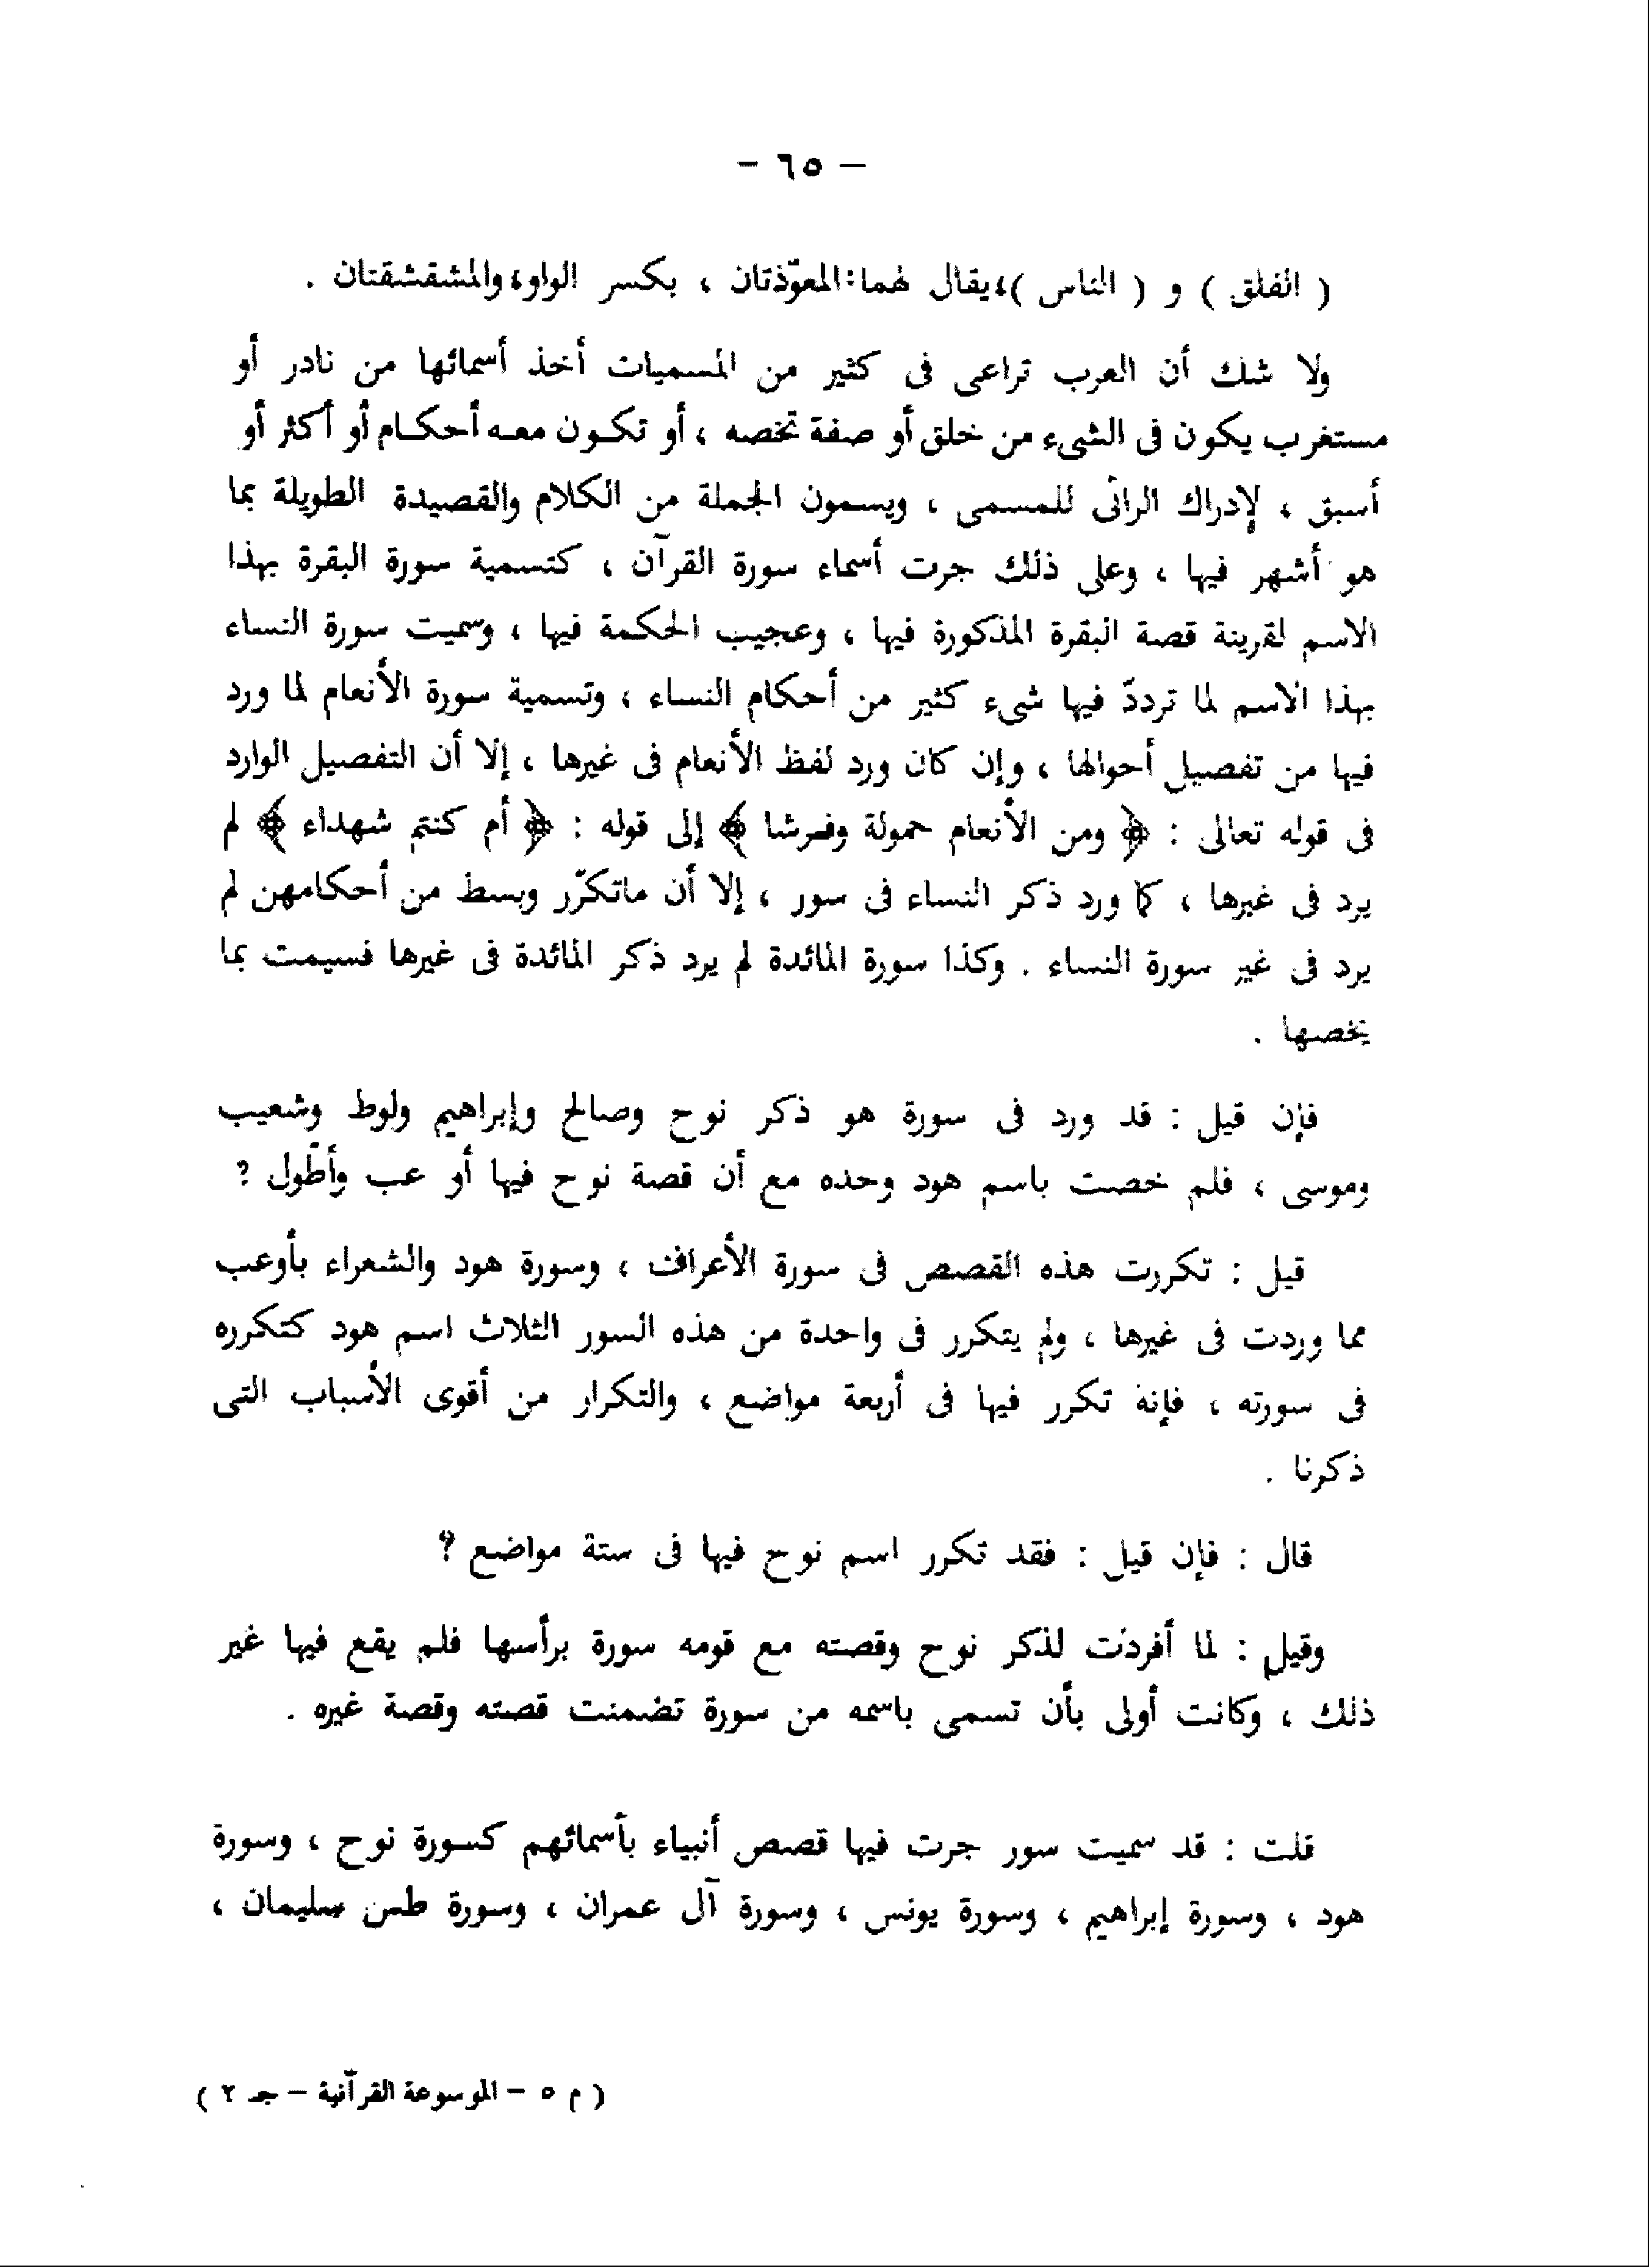 — ٦٥ —
( الفلق ) و ( الناس )، يقال لهما : المعوّذتان ، بكسر الواو، والمشقشقتان .
ولا شك أن العرب تراعى فى كثير من المسميات أخذ أسمائها من نادر أو
مستغرب يكون فى الشىء من خلق أو صفة تخصه ، أو تكون معه أحكام أو أكثر أو
أسبق ، لإدراك الرائى للمسمى ، ويسمون الجملة من الكلام والقصيدة الطويلة بما
هو أشهر فيها ، وعلى ذلك جرت أسماء سورة القرآن ، كتسمية سورة البقرة بهذا
الاسم لقرينة قصة البقرة المذكورة فيها ، وعجيب الحكمة فيها ، وسميت سورة النساء
بهذا الاسم لما تردّد فيها شىء كثير من أحكام النساء ، وتسمية سورة الأنعام لما ورد
فيها من تفصيل أحوالها ، وإن كان ورد لفظ الأنعام فى غيرها ، إلا أن التفصيل الوارد
فى قوله تعالى : ﴿ ومن الأنعام حمولة وفرشا ﴾ إلى قوله : ﴿ أم كنتم شهداء ﴾ لم
يرد فى غيرها ، كما ورد ذكر النساء فى سور ، إلا أن ماتكرّر وبسط من أحكامهن لم
يرد فى غير سورة النساء . وكذا سورة المائدة لم يرد ذكر المائدة فى غيرها فسيمت بما
يخصها .
فإن قيل : قد ورد فى سورة هو ذكر نوح وصالح وإبراهيم ولوط وشعيب
وموسى ، فلم خصت باسم هود وحده مع أن قصة نوح فيها أو عب وأطول ؟
قيل : تكررت هذه القصص فى سورة الأعراف ، وسورة هود والشعراء بأوعب
مما وردت فى غيرها ، ولم يتكرر فى واحدة من هذه السور الثلاث اسم هود كتكرره
فى سورته ، فإنه تكرر فيها فى أربعة مواضع ، والتكرار من أقوى الأسباب التى
ذكرنا .
قال : فإن قيل : فقد تكرر اسم نوح فيها فى ستة مواضع ؟
وقيل : لما أفردت لذكر نوح وقصته مع قومه سورة برأسها فلم يقع فيها غير
ذلك ، وكانت أولى بأن تسمى باسمه من سورة تضمنت قصته وقصة غيره .
قلت : قد سميت سور جرت فيها قصص أنبياء بأسمائهم كسورة نوح ، وسورة
هود ، وسورة إبراهيم ، وسورة يونس ، وسورة آل عمران ، وسورة طس سليمان ،
( م ٥ — الموسوعة القرآنية — جـ ٢ )